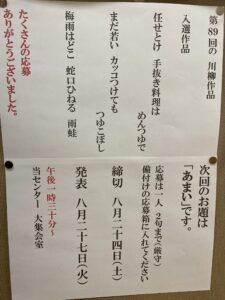 第89回の 川柳作品
入選作品
任せとけ 手抜き料理は
めんつゆで
まだ若い カッコつけても
つゆこぼし
梅雨はどこ 蛇口ひねる 雨蛙
たくさんの応募
ありがとうございました。
次回のお題は
「あまい」です。
応募は一人 2句まで(厳守)
備付けの応募箱に入れてください
締切 八月二十四日(土)
発表 八月二十七日(火)
午後一時三十分~
当センター 大集会室